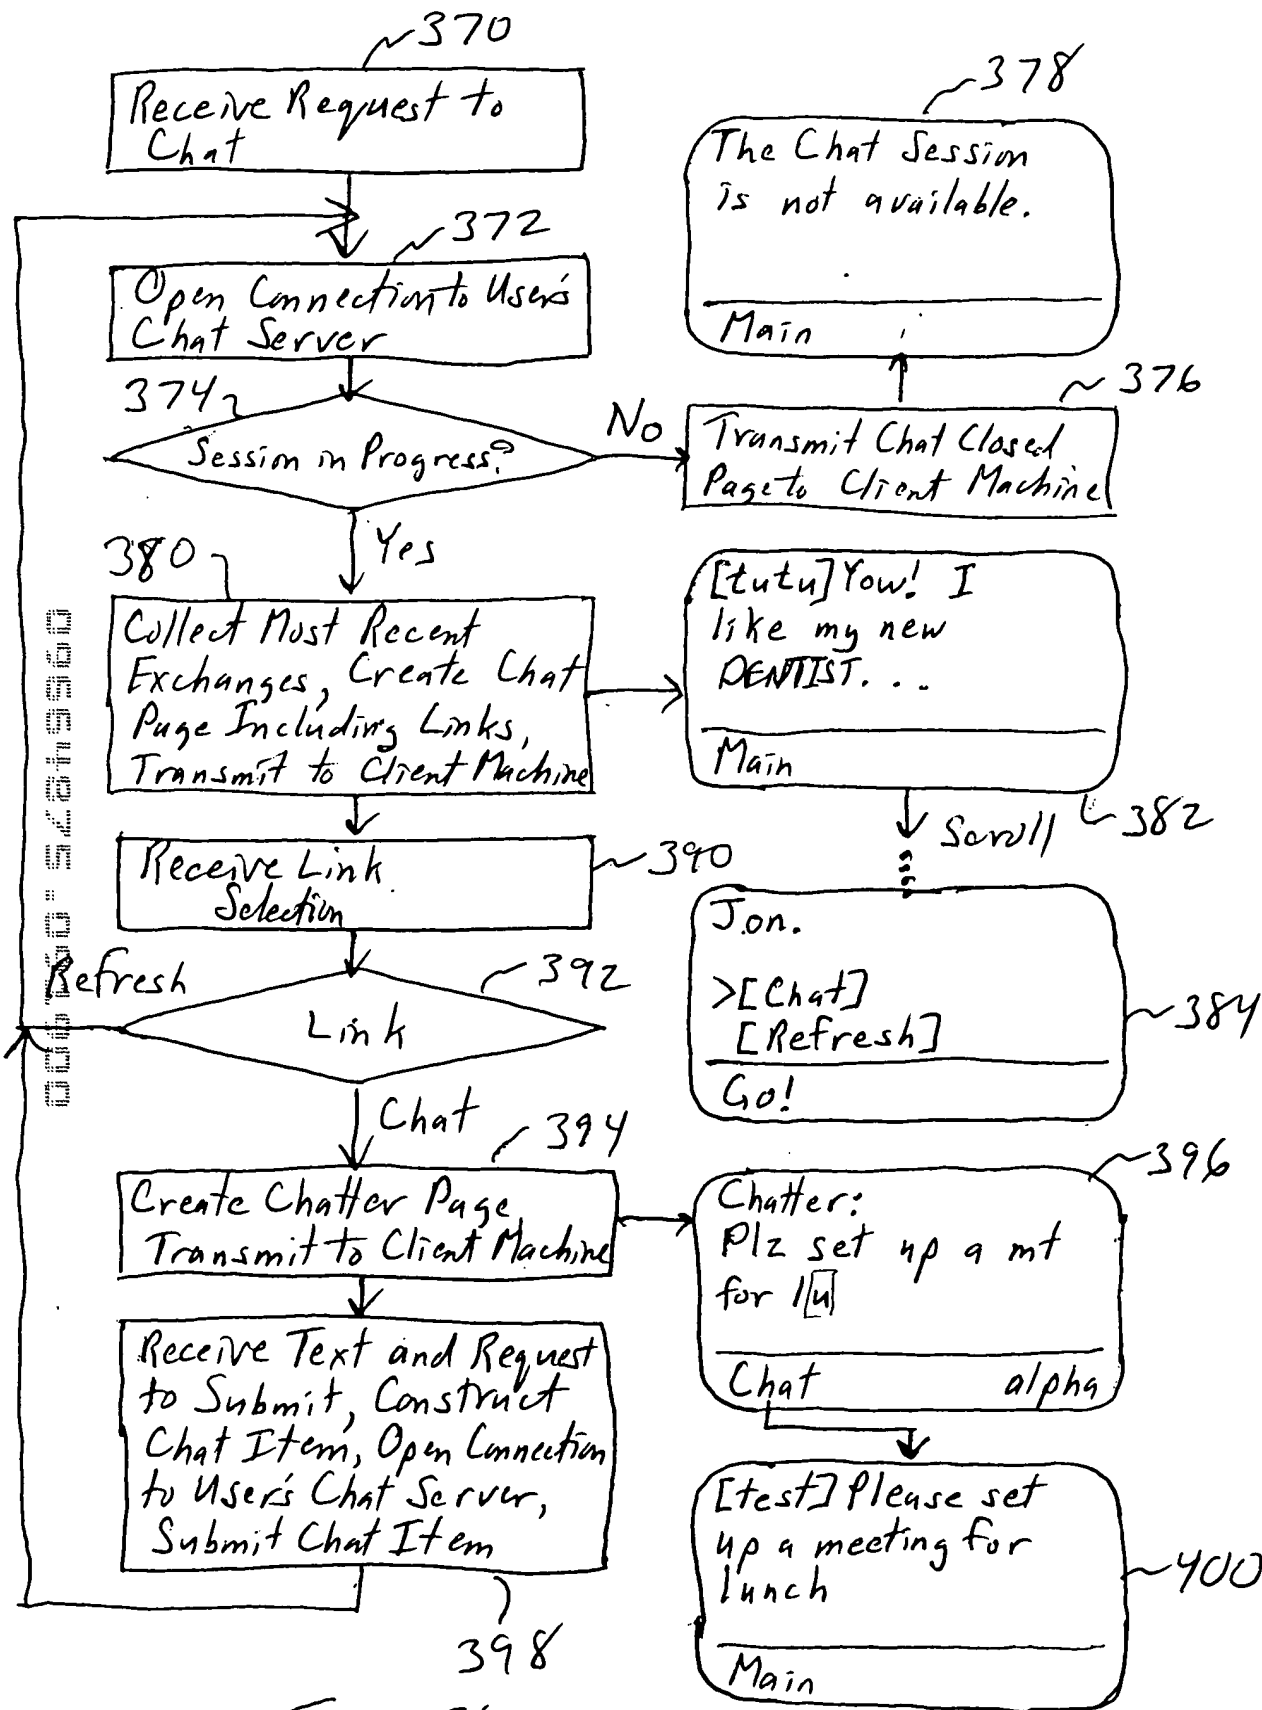 370
Receive Request to
Chat
372
Open Connection to User's
Chat Server
374
Session in Progress?
No
Yes
376
Transmit Chat Closed
Page to Client Machine
378
The Chat Session
is not available.
Main
380
Collect Most Recent
Exchanges, Create Chat
Page Including Links,
Transmit to Client Machine
[tutu] Yow! I
like my new
DENTIST...
Main
382
Scroll
Jon.
>[Chat]
[Refresh]
Go!
384
Receive Link
Selection
390
392
Link
Refresh
Chat
394
Create Chatter Page
Transmit to Client Machine
396
Chatter:
Plz set up a mt
for lu
Chat alpha
Receive Text and Request
to Submit, Construct
Chat Item, Open Connection
to User's Chat Server,
Submit Chat Item
398
[test] Please set
up a meeting for
lunch
Main
400